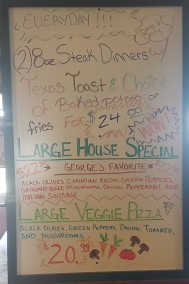 EVERYDAY!!!
(2) 8oz Steak Dinners w/
Texas Toast & Choice
of Baked potato or
fries For $24.00
WOW
LARGE HOUSE SPECIAL
GEORGE'S FAVORITE
BLACK OLIVES CANADIAN BACON GREEN PEPPERS
GROUND BEEF MUSHROOMS, ONION, PEPPERONI, AND
ITALIAN SAUSAGE
LARGE VEGGIE PIZZA
BLACK OLIVES GREEN PEPPERS ONION, TOMATO,
AND MUSHROOMS
$20.99